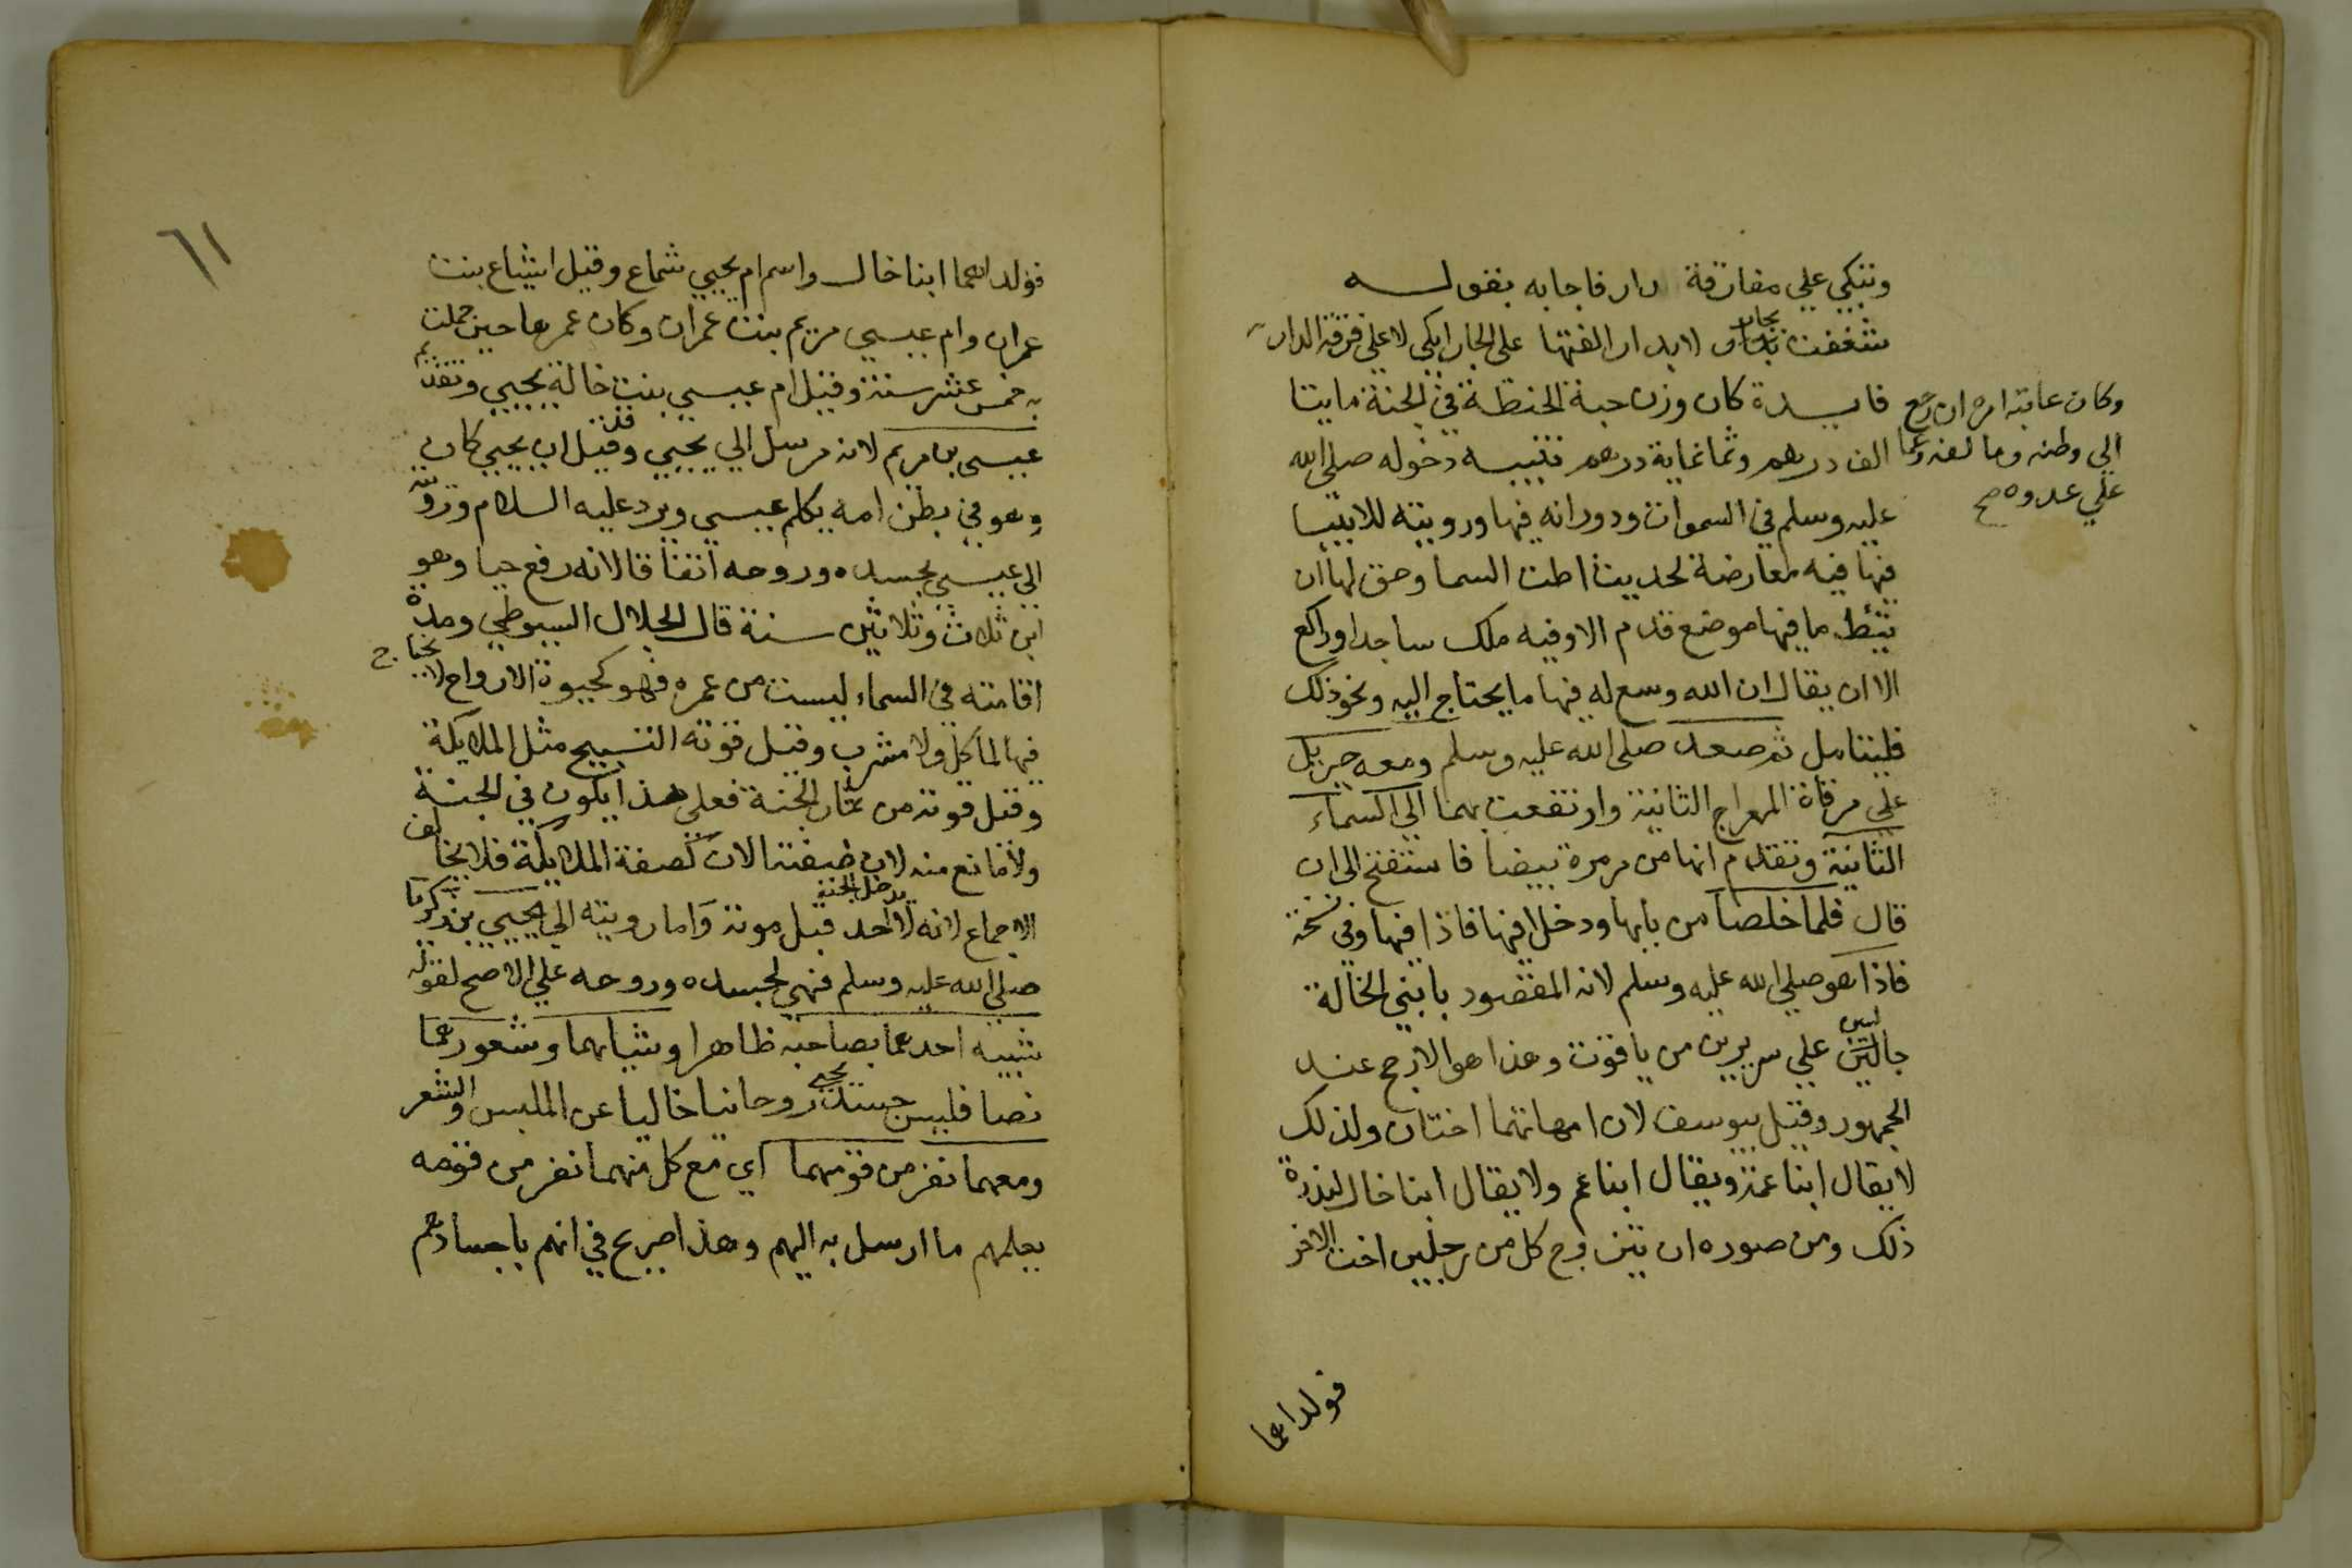 وتبكي علي مفارقة دار فاجابه بقولـــه
شغفت بجار لا بدار الفتها على الجار ابكي لا علي فرقة الدار
فايـدة كان وزن حبة الحنطة في الجنة مايتا
الف درهم وثمانماية درهم تنبيـه دخوله صلى الله
عليه وسلم في السموات ودورانه فيها ورويته للانبيا
فيها فيه معارضة لحديث اطت السما وحق لها ان
تئط ما فيها موضع قدم الا وفيه ملك ساجد او راكع
الا ان يقال ان الله وسع له فيها ما يحتاج اليه ونحو ذلك
فليتامل ثم صعد صلى الله عليه وسلم ومعه جبريل
علي مرقاة المعراج الثانية وارتفعت بهما الي السماء
الثانية وتقدم انها من مرمرة بيضا فاستفتح الى ان
قال فلما خلصا من بابها ودخلا فيها فاذا فيها وفي نسخة
فاذا هو صلي الله عليه وسلم لانه المقصود بابني الخالة
جالسين علي سريرين من ياقوت وهذا هو الارجح عند
الجمهور وقيل بيوسف لان امهاتهما اختان ولذلك
لا يقال ابنا عمة ويقال ابنا عم ولا يقال ابنا خال لندرة
ذلك ومن صوره ان يتزوج كل من رجلين اخت الاخر
فولداهما
وكان عاقبة امره ان رجع
الى وطنه وما لفه
علي عدوه صح
٦١
فولداهما ابنا خال واسم ام يحيي شماع وقيل اشياع بنت
عمران وام عيسي مريم بنت عمران وكان عمرها حين حملت
به خمس عشر سنة وقيل ام عيسي بنت خالة يحيي وتقدم
عيسى بن مريم لانه مرسل الي يحيي وقيل ان يحيي كان
وهو في بطن امه يكلم عيسي ويرد عليه السلام ورويته
الى عيسي بجسده وروحه اتفاقا لانه رفع حيا وهو
ابن ثلاث وثلاثين سنة قال الجلال السيوطي ومدة
اقامته في السماء ليست من عمره فهو كحيوة الارواح لا يحتاج
فيها لماكل ولا مشرب وقيل قوته التسبيح مثل الملايكة
وقيل قوته من ثمار الجنة فعلي هذا يكون في الجنة
ولا مانع منه لان صفته الان كصفة الملايكة فلا يخالف
الاجماع لانه لا يدخل الجنة احد قبل موته واما رويته الي يحيي بن زكريا
صلي الله عليه وسلم فهي لجسده وروحه علي الاصح لقوله
شبيه احدهما بصاحبه ظاهرا وثيابهما وشعورهما
نصا فليس جسد يحيى روحانيا خاليا عن الملبس والشعر
ومعهما نفر من قومهما اي مع كل منهما نفر من قومه
يعلمهم ما ارسل به اليهم وهذا صريح في انهم باجسادهم